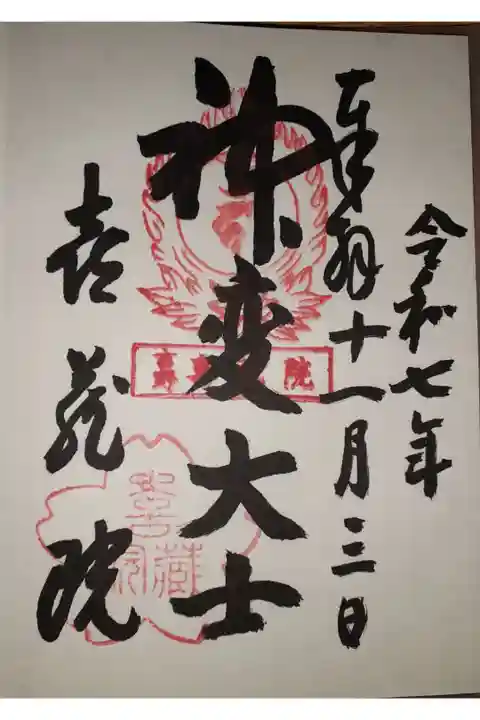 令和七年
奉拝十一月三日
神変大士
院
喜蔵院
喜蔵院